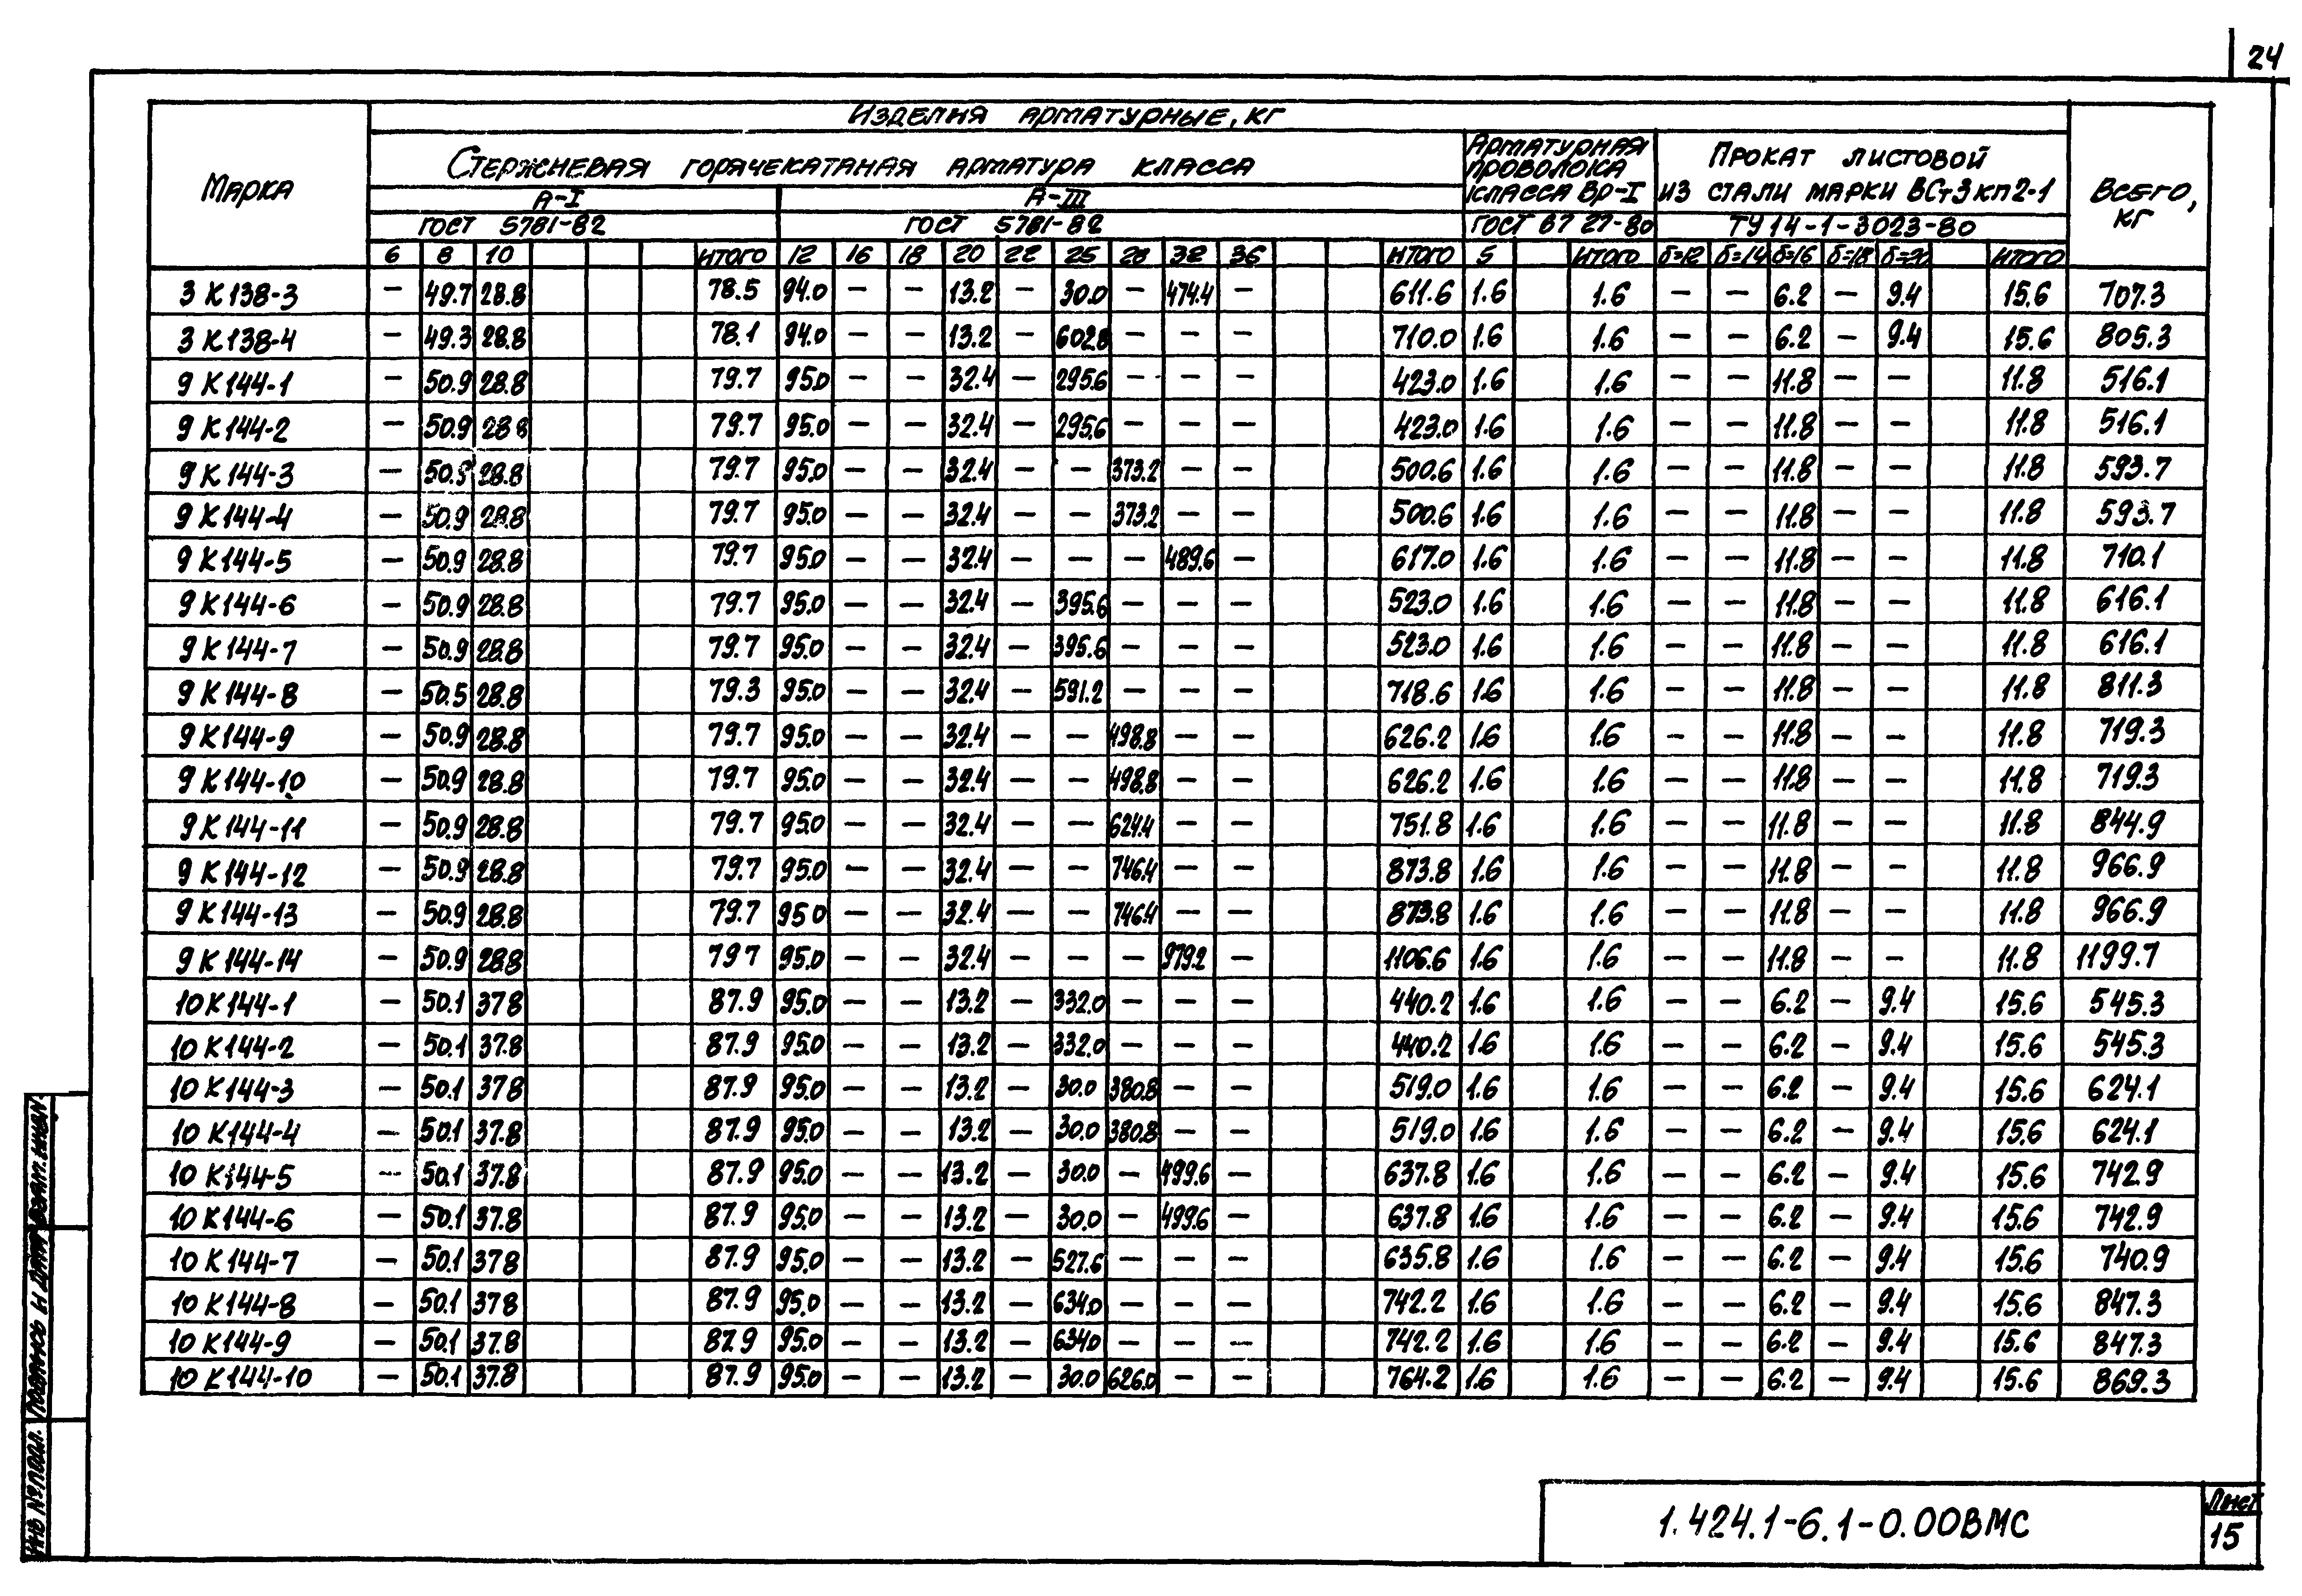 24
Изделия арматурные, кг
Марка
Стержневая горячекатаная арматура класса
Арматурная проволока класса Вр-I
Прокат листовой из стали марки ВСт3кп2-1
Всего, кг
А-I
А-III
ГОСТ 5781-82
ГОСТ 5781-82
ГОСТ 6727-80
ТУ14-1-3023-80
6 8 10 Итого 12 16 18 20 22 25 28 32 36 Итого 5 Итого б=12 б=14 б=16 б=18 б=20 Итого
3К138-3 — 49.7 28.8 78.5 94.0 — — 13.2 — 30.0 — 474.4 — 611.6 1.6 1.6 — — 6.2 — 9.4 15.6 707.3
3К138-4 — 49.3 28.8 78.1 94.0 — — 13.2 — 602.8 — — — 710.0 1.6 1.6 — — 6.2 — 9.4 15.6 805.3
9К144-1 — 50.9 28.8 79.7 95.0 — — 32.4 — 295.6 — — — 423.0 1.6 1.6 — — 11.8 — — 11.8 516.1
9К144-2 — 50.9 28.8 79.7 95.0 — — 32.4 — 295.6 — — — 423.0 1.6 1.6 — — 11.8 — — 11.8 516.1
9К144-3 — 50.9 28.8 79.7 95.0 — — 32.4 — — 373.2 — — 500.6 1.6 1.6 — — 11.8 — — 11.8 593.7
9К144-4 — 50.9 28.8 79.7 95.0 — — 32.4 — — 373.2 — — 500.6 1.6 1.6 — — 11.8 — — 11.8 593.7
9К144-5 — 50.9 28.8 79.7 95.0 — — 32.4 — — — 489.6 — 617.0 1.6 1.6 — — 11.8 — — 11.8 710.1
9К144-6 — 50.9 28.8 79.7 95.0 — — 32.4 — 395.6 — — — 523.0 1.6 1.6 — — 11.8 — — 11.8 616.1
9К144-7 — 50.9 28.8 79.7 95.0 — — 32.4 — 395.6 — — — 523.0 1.6 1.6 — — 11.8 — — 11.8 616.1
9К144-8 — 50.5 28.8 79.3 95.0 — — 32.4 — 591.2 — — — 718.6 1.6 1.6 — — 11.8 — — 11.8 811.3
9К144-9 — 50.9 28.8 79.7 95.0 — — 32.4 — — 498.8 — — 626.2 1.6 1.6 — — 11.8 — — 11.8 719.3
9К144-10 — 50.9 28.8 79.7 95.0 — — 32.4 — — 498.8 — — 626.2 1.6 1.6 — — 11.8 — — 11.8 719.3
9К144-11 — 50.9 28.8 79.7 95.0 — — 32.4 — — 624.4 — — 751.8 1.6 1.6 — — 11.8 — — 11.8 844.9
9К144-12 — 50.9 28.8 79.7 95.0 — — 32.4 — — 746.4 — — 873.8 1.6 1.6 — — 11.8 — — 11.8 966.9
9К144-13 — 50.9 28.8 79.7 95.0 — — 32.4 — — 746.4 — — 873.8 1.6 1.6 — — 11.8 — — 11.8 966.9
9К144-14 — 50.9 28.8 79.7 95.0 — — 32.4 — — — 979.2 — 1106.6 1.6 1.6 — — 11.8 — — 11.8 1199.7
10К144-1 — 50.1 37.8 87.9 95.0 — — 13.2 — 332.0 — — — 440.2 1.6 1.6 — — 6.2 — 9.4 15.6 545.3
10К144-2 — 50.1 37.8 87.9 95.0 — — 13.2 — 332.0 — — — 440.2 1.6 1.6 — — 6.2 — 9.4 15.6 545.3
10К144-3 — 50.1 37.8 87.9 95.0 — — 13.2 — 30.0 380.8 — — 519.0 1.6 1.6 — — 6.2 — 9.4 15.6 624.1
10К144-4 — 50.1 37.8 87.9 95.0 — — 13.2 — 30.0 380.8 — — 519.0 1.6 1.6 — — 6.2 — 9.4 15.6 624.1
10К144-5 — 50.1 37.8 87.9 95.0 — — 13.2 — 30.0 — 499.6 — 637.8 1.6 1.6 — — 6.2 — 9.4 15.6 742.9
10К144-6 — 50.1 37.8 87.9 95.0 — — 13.2 — 30.0 — 499.6 — 637.8 1.6 1.6 — — 6.2 — 9.4 15.6 742.9
10К144-7 — 50.1 37.8 87.9 95.0 — — 13.2 — 527.6 — — — 635.8 1.6 1.6 — — 6.2 — 9.4 15.6 740.9
10К144-8 — 50.1 37.8 87.9 95.0 — — 13.2 — 634.0 — — — 742.2 1.6 1.6 — — 6.2 — 9.4 15.6 847.3
10К144-9 — 50.1 37.8 87.9 95.0 — — 13.2 — 634.0 — — — 742.2 1.6 1.6 — — 6.2 — 9.4 15.6 847.3
10К144-10 — 50.1 37.8 87.9 95.0 — — 13.2 — 30.0 626.0 — — 764.2 1.6 1.6 — — 6.2 — 9.4 15.6 869.3
Инв № подл. Подпись и дата Взам. инв №
1.424.1-6.1-0.00ВМС
Лист
15